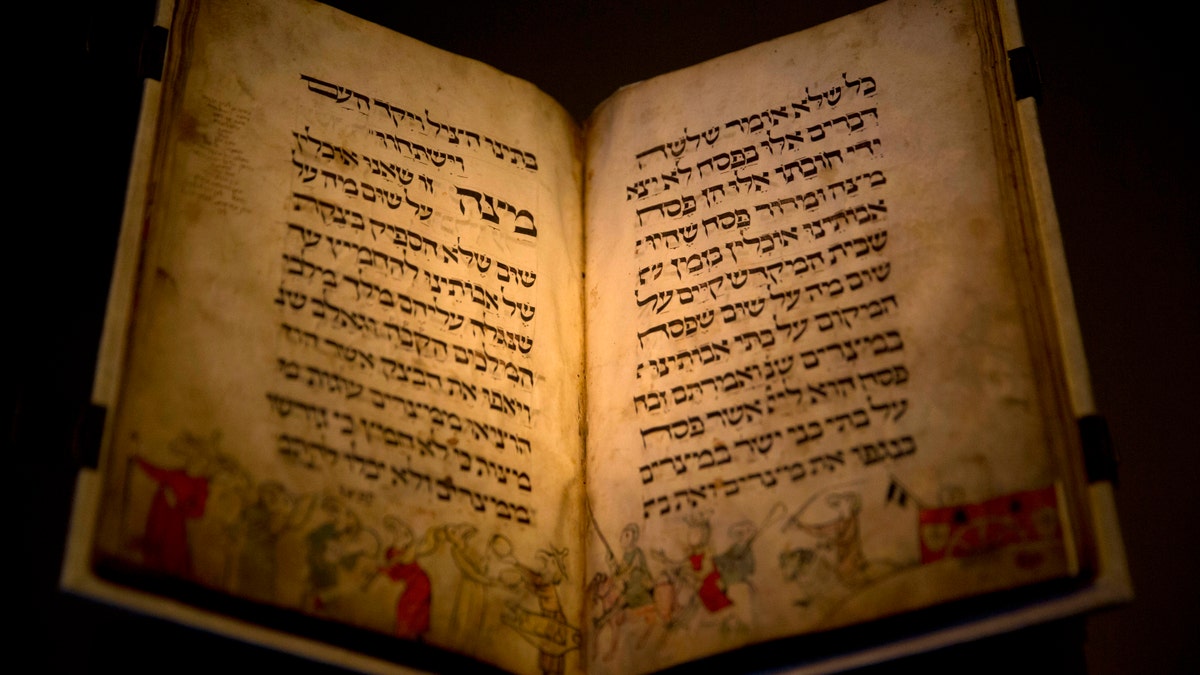 כל שלא אומר שלשה
דברים אלו בפסח לא יצא
ידי חובתו אלו הן פסח
מצה ומרור פסח שהיו
אבותינו אוכלין בזמן
שבית המקדש קיים על
שום מה על שום שפסח
המקום על בתי אבותינו
במצרים שנ ואמרתם זבח
פסח הוא ליי אשר פסח
על בתי בני ישר במצרים
בנגפו את מצרים ואת
בתינו הציל ויקד העם
וישתחוו
מצה זו שאנו אוכלין
על שום מה על
שום שלא הספיק בצקת
של אבותינו להחמיץ עד
שנגלה עליהם מלך מלכי
המלכים הקבה וגאלם שנ
ויאפו את הבצק אשר
הוציאו ממצרים עוגות
מצות כי לא חמץ כי גורשו
ממצרים ולא יכלו להתמ